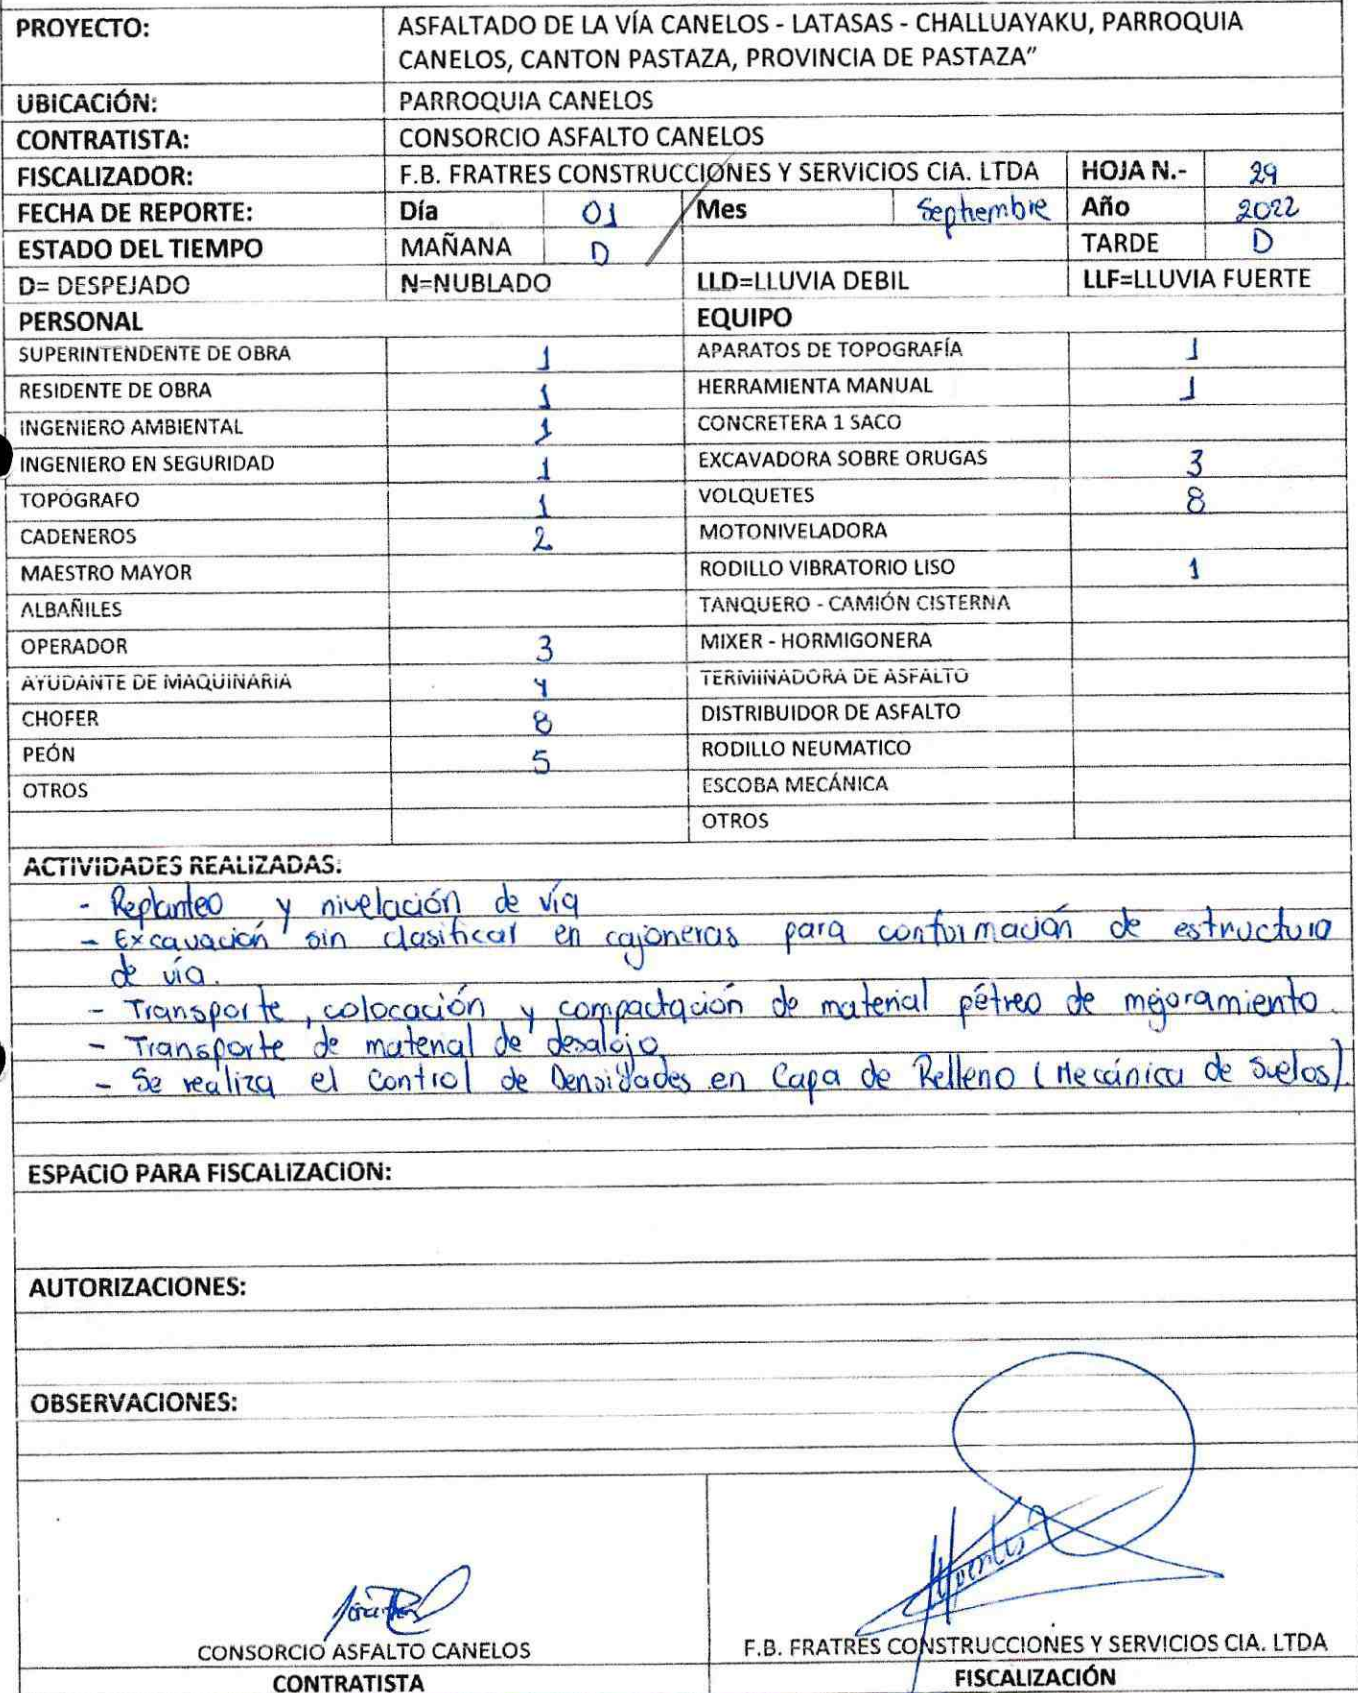 PROYECTO: ASFALTADO DE LA VÍA CANELOS - LATASAS - CHALLUAYAKU, PARROQUIA
CANELOS, CANTON PASTAZA, PROVINCIA DE PASTAZA"
UBICACIÓN: PARROQUIA CANELOS
CONTRATISTA: CONSORCIO ASFALTO CANELOS
FISCALIZADOR: F.B. FRATRES CONSTRUCCIONES Y SERVICIOS CIA. LTDA HOJA N.- 29
FECHA DE REPORTE: Día 01 Mes Septiembre Año 2022
ESTADO DEL TIEMPO MAÑANA D TARDE D
D= DESPEJADO N=NUBLADO LLD=LLUVIA DEBIL LLF=LLUVIA FUERTE
PERSONAL EQUIPO
SUPERINTENDENTE DE OBRA 1 APARATOS DE TOPOGRAFÍA 1
RESIDENTE DE OBRA 1 HERRAMIENTA MANUAL 1
INGENIERO AMBIENTAL 1 CONCRETERA 1 SACO
INGENIERO EN SEGURIDAD 1 EXCAVADORA SOBRE ORUGAS 3
TOPÓGRAFO 1 VOLQUETES 8
CADENEROS 2 MOTONIVELADORA
MAESTRO MAYOR RODILLO VIBRATORIO LISO 1
ALBAÑILES TANQUERO - CAMIÓN CISTERNA
OPERADOR 3 MIXER - HORMIGONERA
AYUDANTE DE MAQUINARIA 4 TERMINADORA DE ASFALTO
CHOFER 8 DISTRIBUIDOR DE ASFALTO
PEÓN 5 RODILLO NEUMATICO
OTROS ESCOBA MECÁNICA
OTROS
ACTIVIDADES REALIZADAS:
- Replanteo y nivelación de vía
- Excavación sin clasificar en cajoneras para conformación de estructura
de vía.
- Transporte, colocación y compactación de material pétreo de mejoramiento.
- Transporte de material de desalojo
- Se realiza el Control de Densidades en Capa de Relleno (Mecánica de Suelos).
ESPACIO PARA FISCALIZACION:
AUTORIZACIONES:
OBSERVACIONES:
CONSORCIO ASFALTO CANELOS F.B. FRATRES CONSTRUCCIONES Y SERVICIOS CIA. LTDA
CONTRATISTA FISCALIZACIÓN